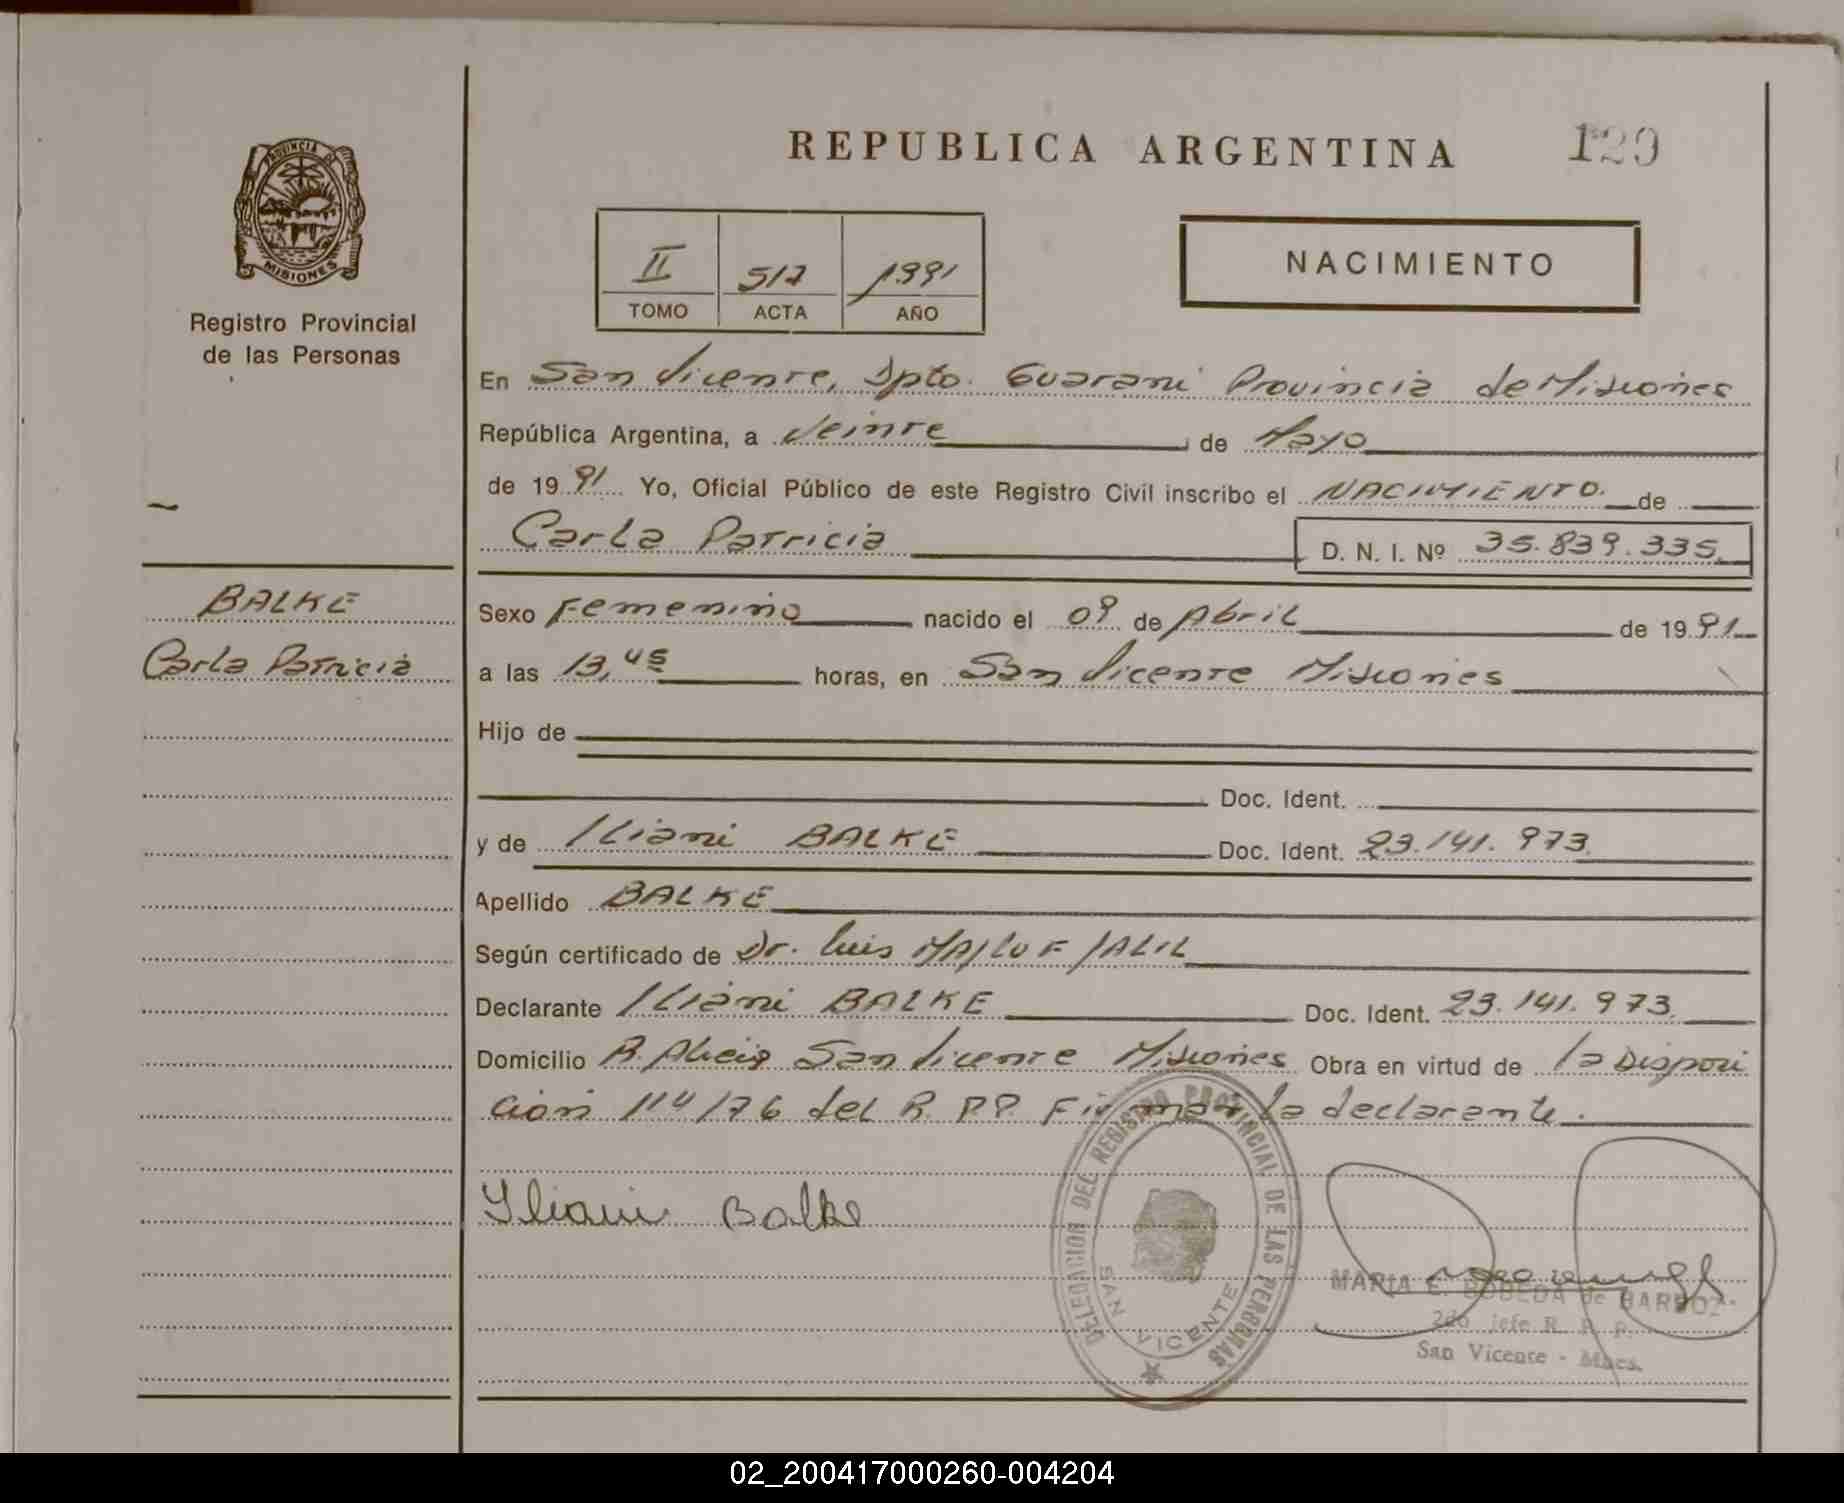 REPUBLICA ARGENTINA
129
PROVINCIA DE
MISIONES
Registro Provincial
de las Personas
II 517 1991
TOMO ACTA AÑO
NACIMIENTO
En San Vicente, Dpto. Guarani Provincia de Misiones
República Argentina, a Veinte de Mayo
de 1991 Yo, Oficial Público de este Registro Civil inscribo el NACIMIENTO. de
Carla Patricia D. N. I. Nº 35.839.335
BALKE
Carla Patricia
Sexo Femenino nacido el 09 de Abril de 1991
a las 13,45 horas, en San Vicente Misiones
Hijo de
Doc. Ident.
y de Iliani BALKE Doc. Ident. 23.141.973
Apellido BALKE
Según certificado de Dr. Luis MAJLUF JALIL
Declarante Iliani BALKE Doc. Ident. 23.141.973
Domicilio San Vicente Misiones Obra en virtud de la Disposi
cion 114/76 del R. P.P. Firman la declarante.
Iliani Balke
DELEGACION DEL REGISTRO PROVINCIAL DE LAS PERSONAS
SAN VICENTE
MARIA E. BOBEDA de BARBOZA
2do Jefe R. P. P.
San Vicente - Mnes.
02_200417000260-004204